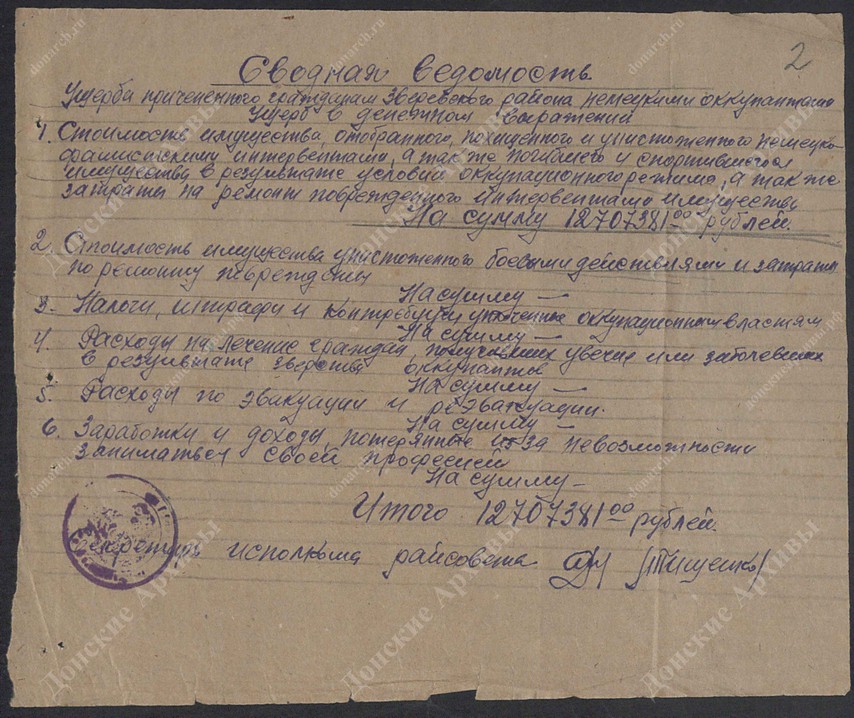 2
Сводная ведомость
Ущерба приченённого гражданам Зверевского района немецкими оккупантами
Ущерб в денежном выражений
1. Стоимость имущества, отобранного, похищенного и унистоженного немецко-
фашистскими интервентами, а так же погибшего и спортившегося
имущества в результате условий оккупационного режима, а так же
затраты на ремонт поврежденного интервентами имущества
На сумму 12707381 00 рублей.
2. Стоимость имущества унистоженного боевыми действиями и затраты
по ремонту
На сумму —
3. Налоги, штрафы и контрибуции уплоченные оккупационным властям
На сумму —
4. Расходы на лечение граждан, получивших увечие или заболевших
в результате зверства оккупантов
На сумму —
5. Расходы по эвакуации и реэвакуации.
На сумму —
6. Заработки и доходы, потерянные из-за невозможности
заниматься своей професией
На сумму —
Итого 12707381 00 рублей.
Секретарь исполкома райсовета /Тищенко/
Донские Архивы
donarch.ru
донскиеархивы.рф